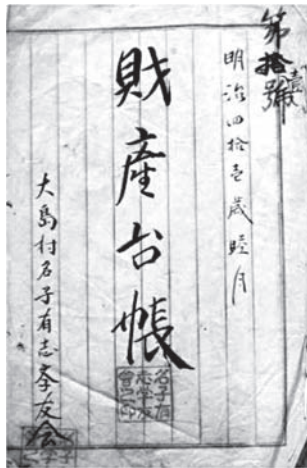 第拾壹號
明治四拾壱歳睦月
財産台帳
大島村名子有志孝友会
名子有
志孝友
會之印